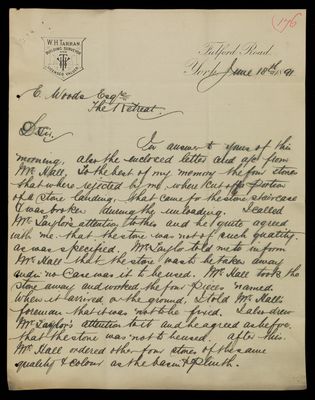 176
W.H. TARRAN
BUILDING SURVEYOR
LICENSED VALUER
Fulford Road.
York June 18th 1891
E. Woods Esqre
The Retreat.
Sir,
In answer to yours of this
morning, also the enclosed letter and a/c from
Mr Hall, To the best of my memory the four stones
that where rejected by me, where cut off a portion
of a stone landing, that came for the stone staircase
& was broken during the unloading. I called
Mr Taylor's attention to this and he quite agreed
with me that the stone was not of such quality
as was specified. Mr Taylor told me to inform
Mr Hall that the stone was to be taken away
under no case was it to be used. Mr Hall took the
stone away and worked the four pieces named.
When it arrived on the ground, I told Mr Hall's
foreman that it was not to be fixed. I also drew
Mr Taylor's attention to it and he agreed as before,
that the stone was not to be used. after this.
Mr Hall ordered other four stones of the same
quality & colour as the basin & plinth.